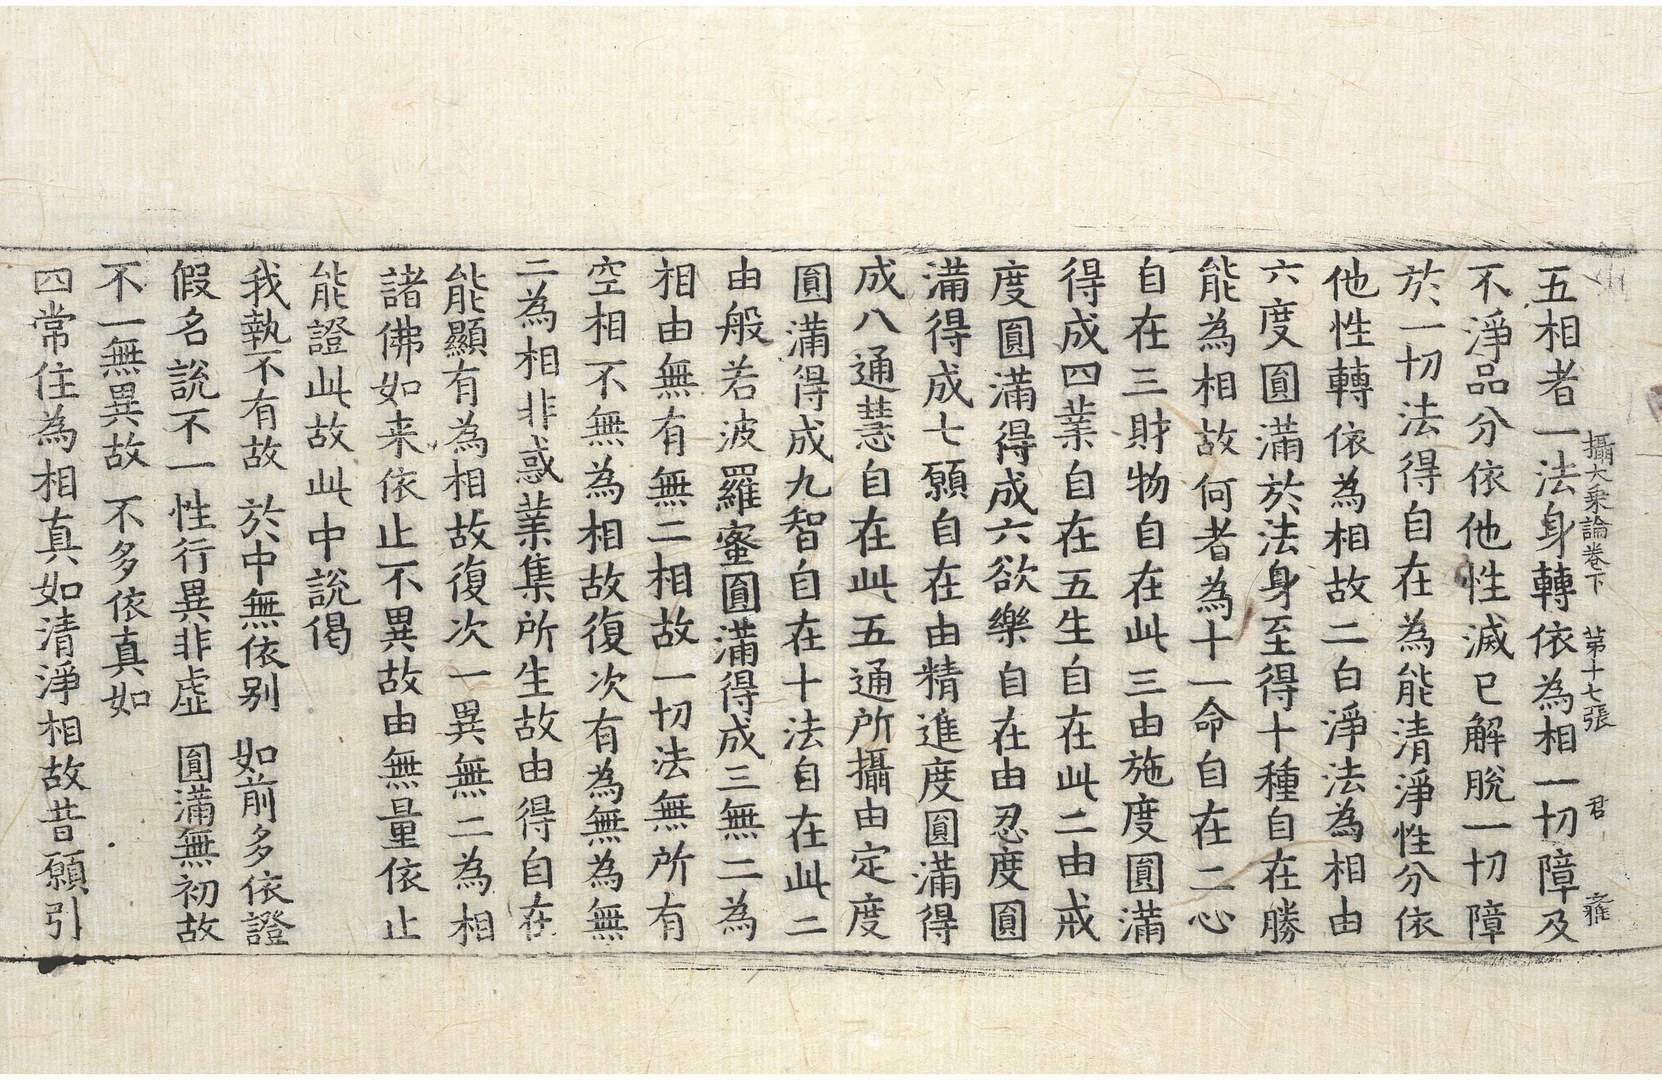 攝大乘論卷下　第十七張　君　雍
五相者一法身轉依為相一切障及
不淨品分依他性滅已解脫一切障
於一切法得自在為能清淨性分依
他性轉依為相故二白淨法為相由
六度圓滿於法身至得十種自在勝
能為相故何者為十一命自在二心
自在三財物自在此三由施度圓滿
得成四業自在五生自在此二由戒
度圓滿得成六欲樂自在由忍度圓
滿得成七願自在由精進度圓滿得
成八通慧自在此五通所攝由定度
圓滿得成九智自在十法自在此二
由般若波羅蜜圓滿得成三無二為
相由無有無二相故一切法無所有
空相不無為相故復次有為無為無
二為相非惑業集所生故由得自在
能顯有為相故復次一異無二為相
諸佛如来依止不異故由無量依止
能證此故此中說偈
我執不有故　於中無依别　如前多依證
假名說不一　性行異非虛　圓滿無初故
不一無異故　不多依真如
四常住為相真如清淨相故昔願引